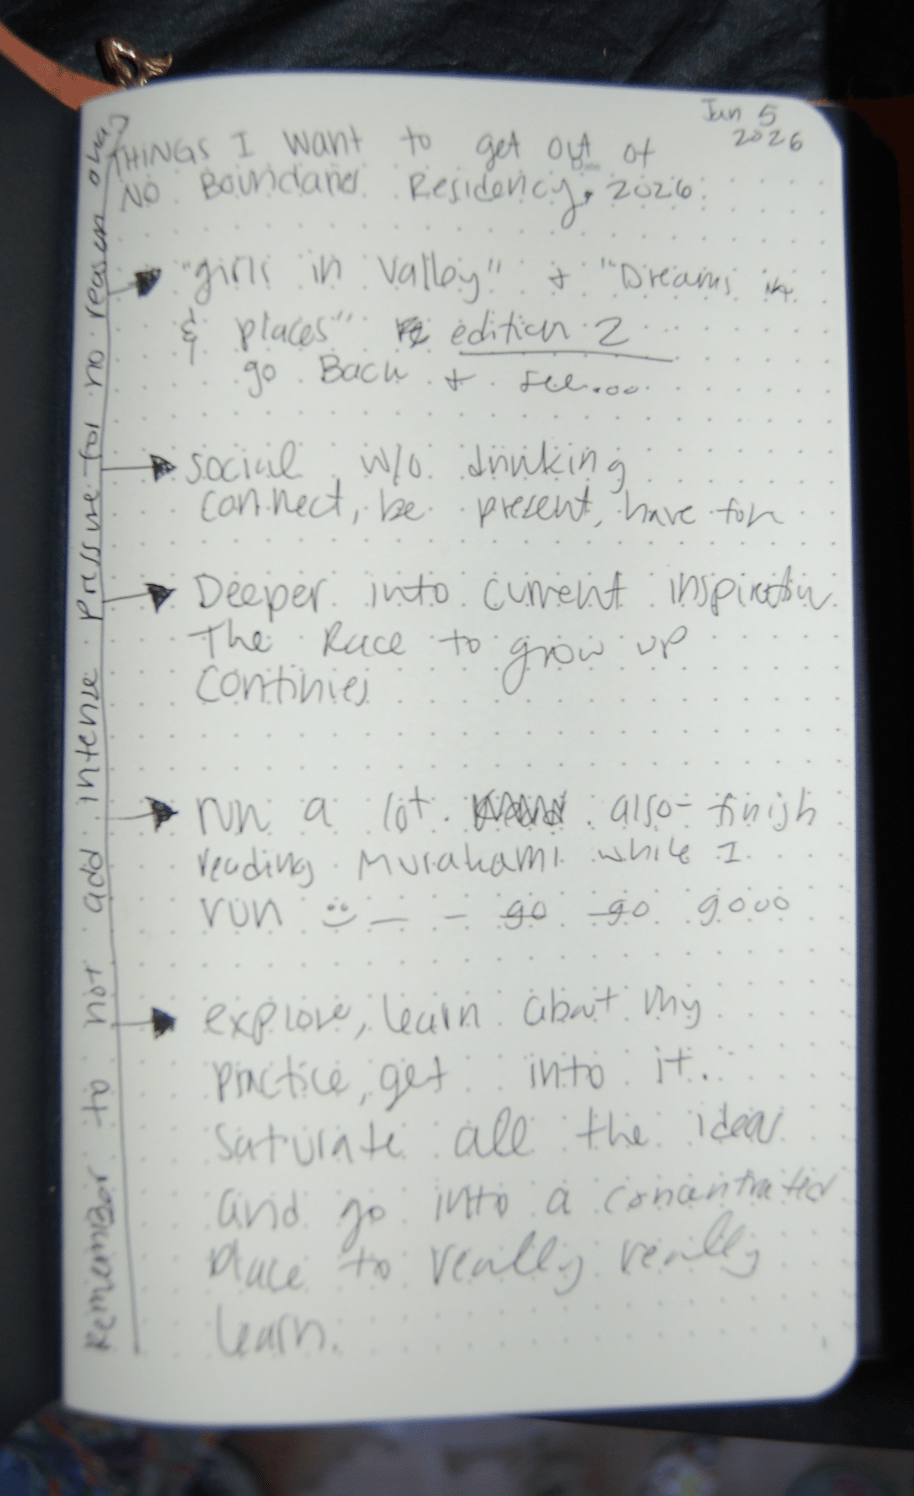 Jan 5
2026
THINGS I Want to get out of
NO Boundaries Residency, 2026
"girls in Valley" + "Dreams in
& places" edition 2
go Back + see...
social w/o drinking
connect, be present, have fun
Deeper into current inspiration
The Race to grow up
continues
run a lot also - finish
reading Murakami while I
run :) — – go go gooo
explore, learn about my
practice, get into it.
Saturate all the ideas
and go into a concentrated
place to really really
learn.
Remember to not add intense pressure for no reason